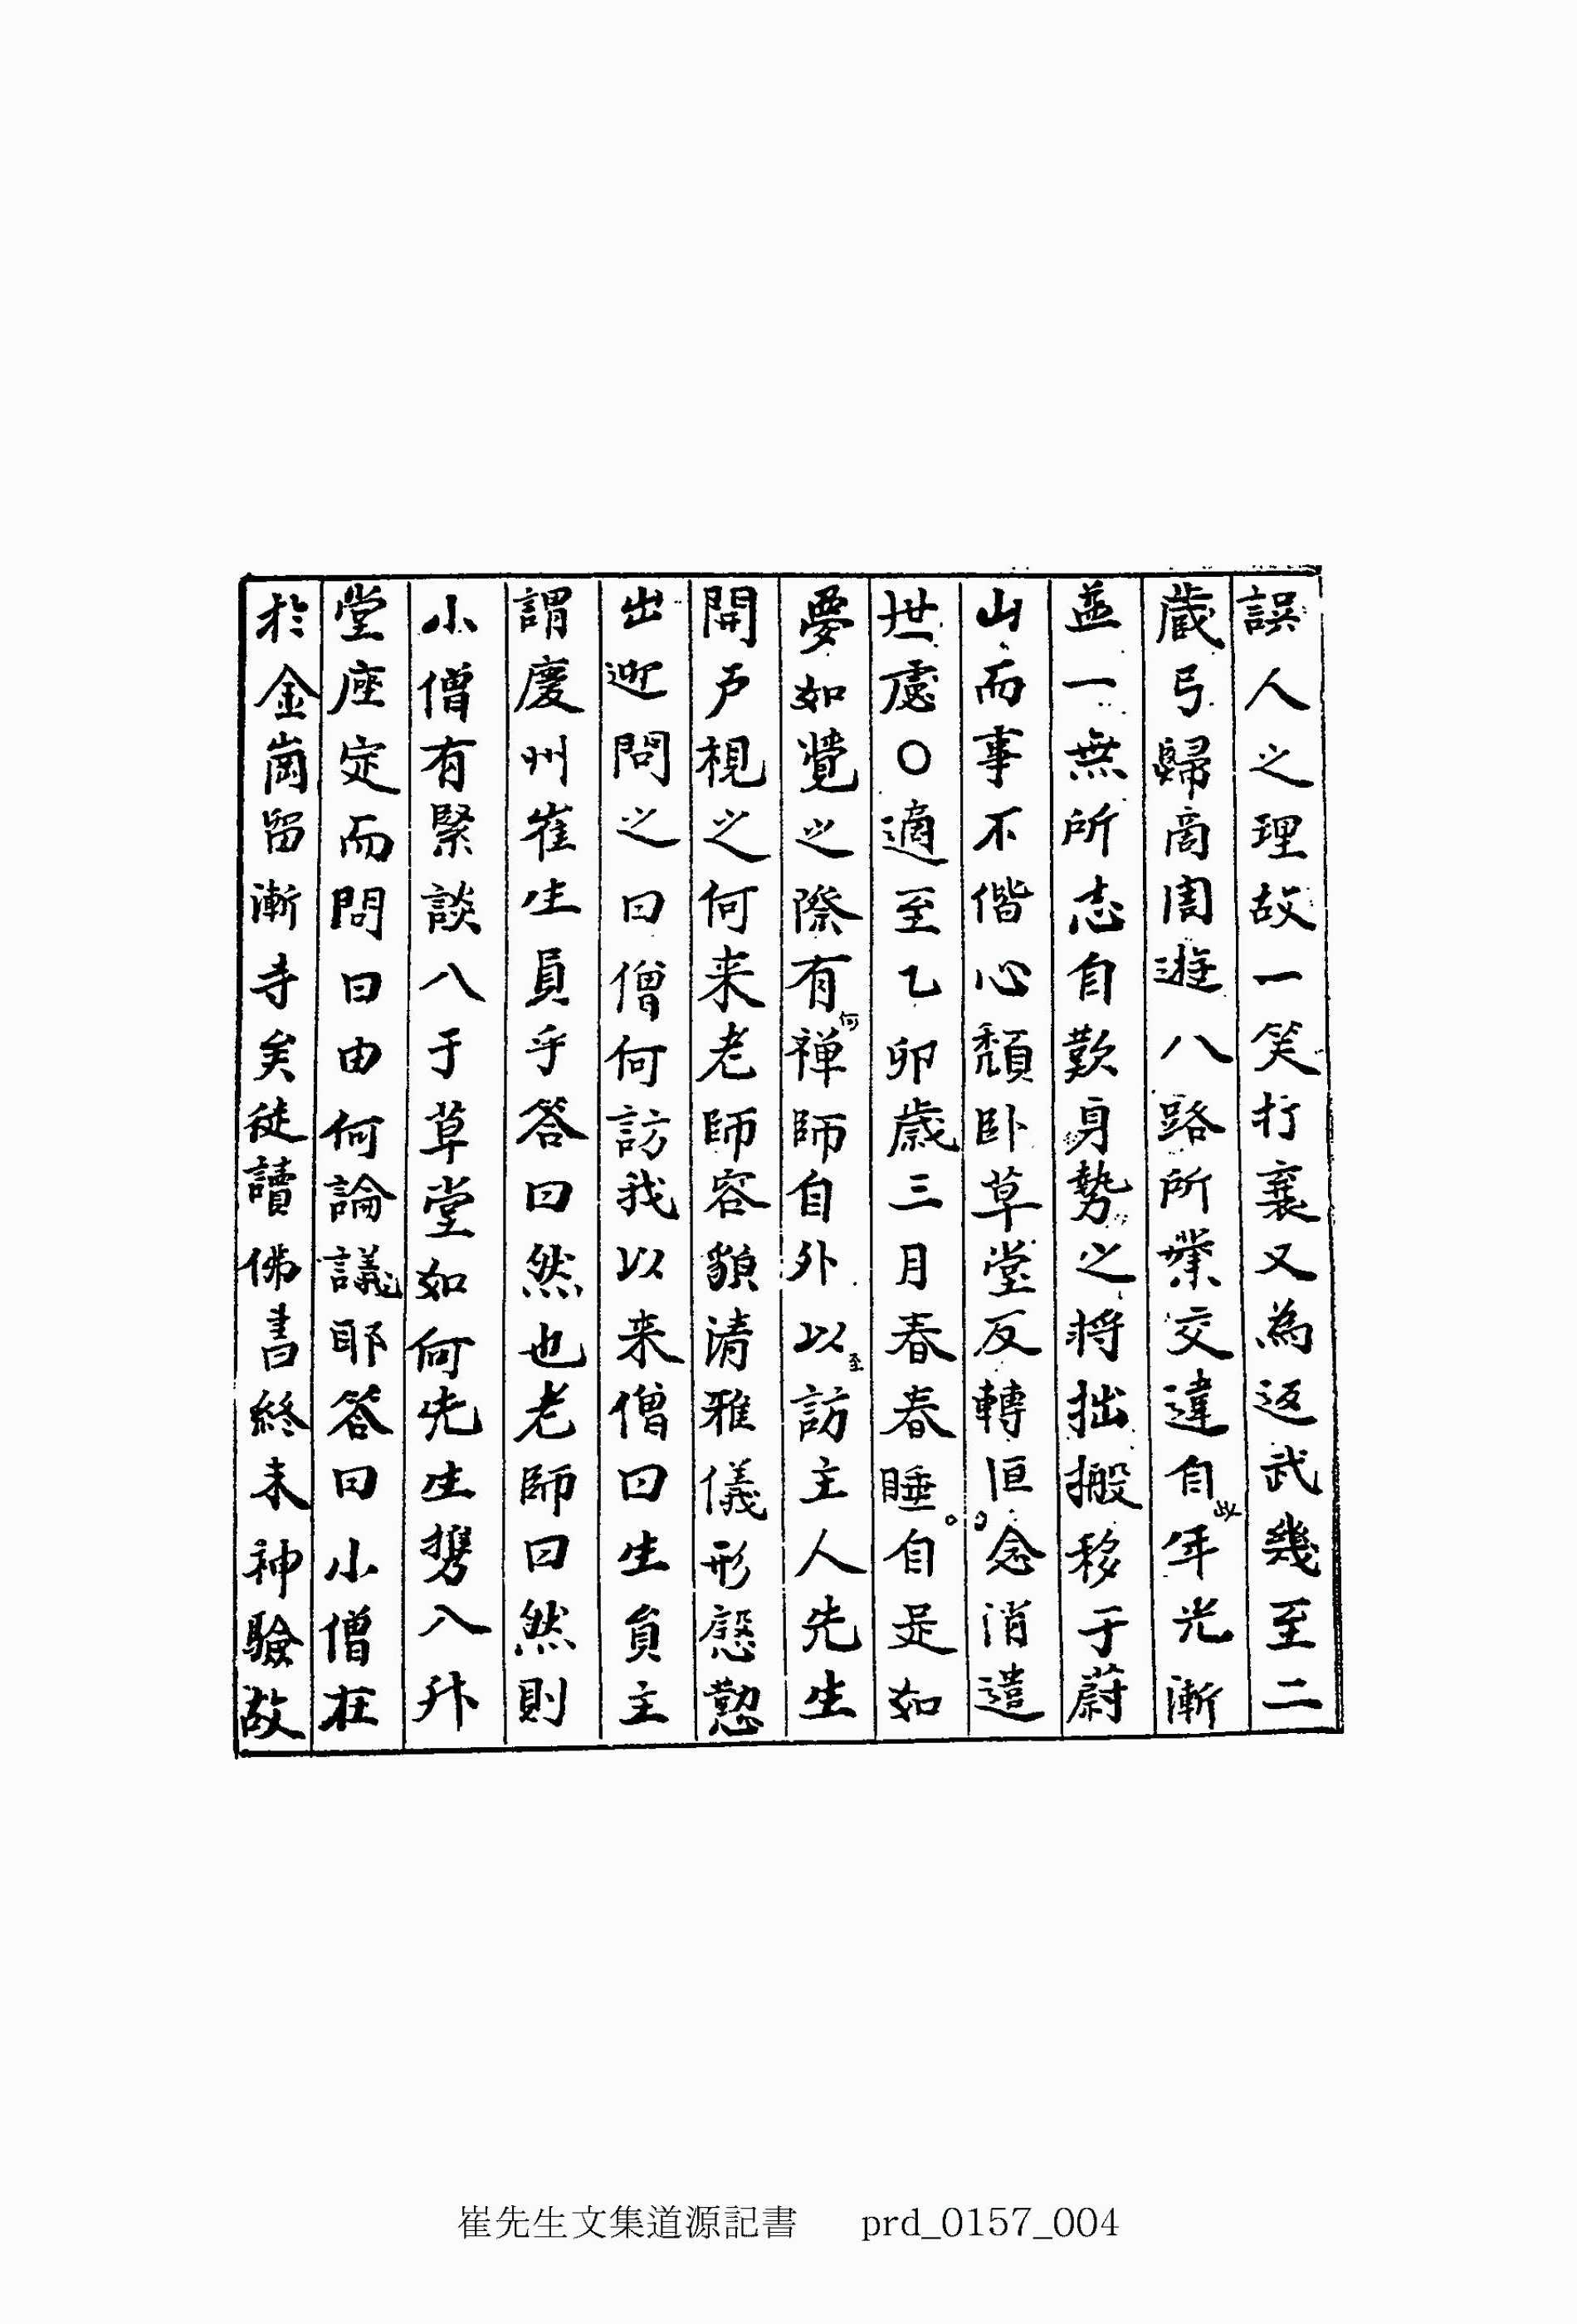 誤人之理故一笑打褰又為返武幾至二
歲弓歸商周遊八路所業交違自此年光漸
益一無所志自歎身勢之將拙搬移于蔚
山而事不偕心頹卧草堂反轉恒念消遣
世慮〇適至乙卯歲三月春春睡自是如
夢如覺之際有何禅師自外以至訪主人先生
開戶視之何来老師容貌清雅儀形慇懃
出迎問之曰僧何訪我以来僧曰生員主
謂慶州崔生員乎答曰然也老師曰然則
小僧有緊談入于草堂如何先生携入升
堂座定而問曰由何論議耶答曰小僧在
於金崗留漸寺矣徒讀佛書終未神驗故
崔先生文集道源記書 prd_0157_004